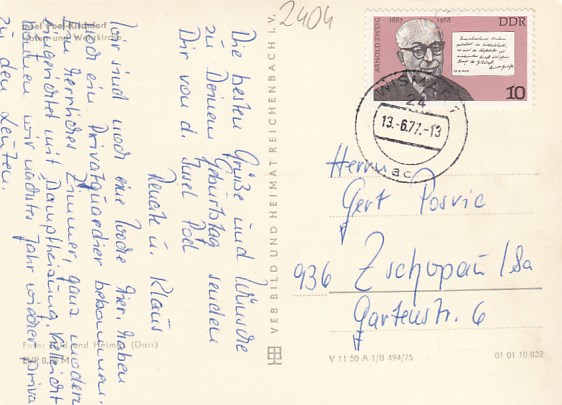 2404
Insel Poel-Kirchdorf
Hafen und Wehrkirche
Die besten Grüße und Wünsche
zu Deinem Geburtstag senden
Dir von d. Insel Poel
Renate u. Klaus
Wir sind noch eine Woche hier, haben
noch ein Privatquardier bekommen.
Ein herrliches Zimmer, ganz modern
eingerichtet mit Dampfheizung, vielleicht
können wir nächstes Jahr wieder Privat
zu den Leuten.
Foto: Bild und Heimat (Darr)
EVP 0, M
VEB BILD UND HEIMAT REICHENBACH I. V.
ARNOLD ZWEIG
1887 1968
DDR
10
WISMAR
24
13.-6.77.-13
Herrn
Gert Posvic
936 Zschopau/Sa
Gartenstr. 6
V 11 50 A 1/B 494/75
01 01 10 032